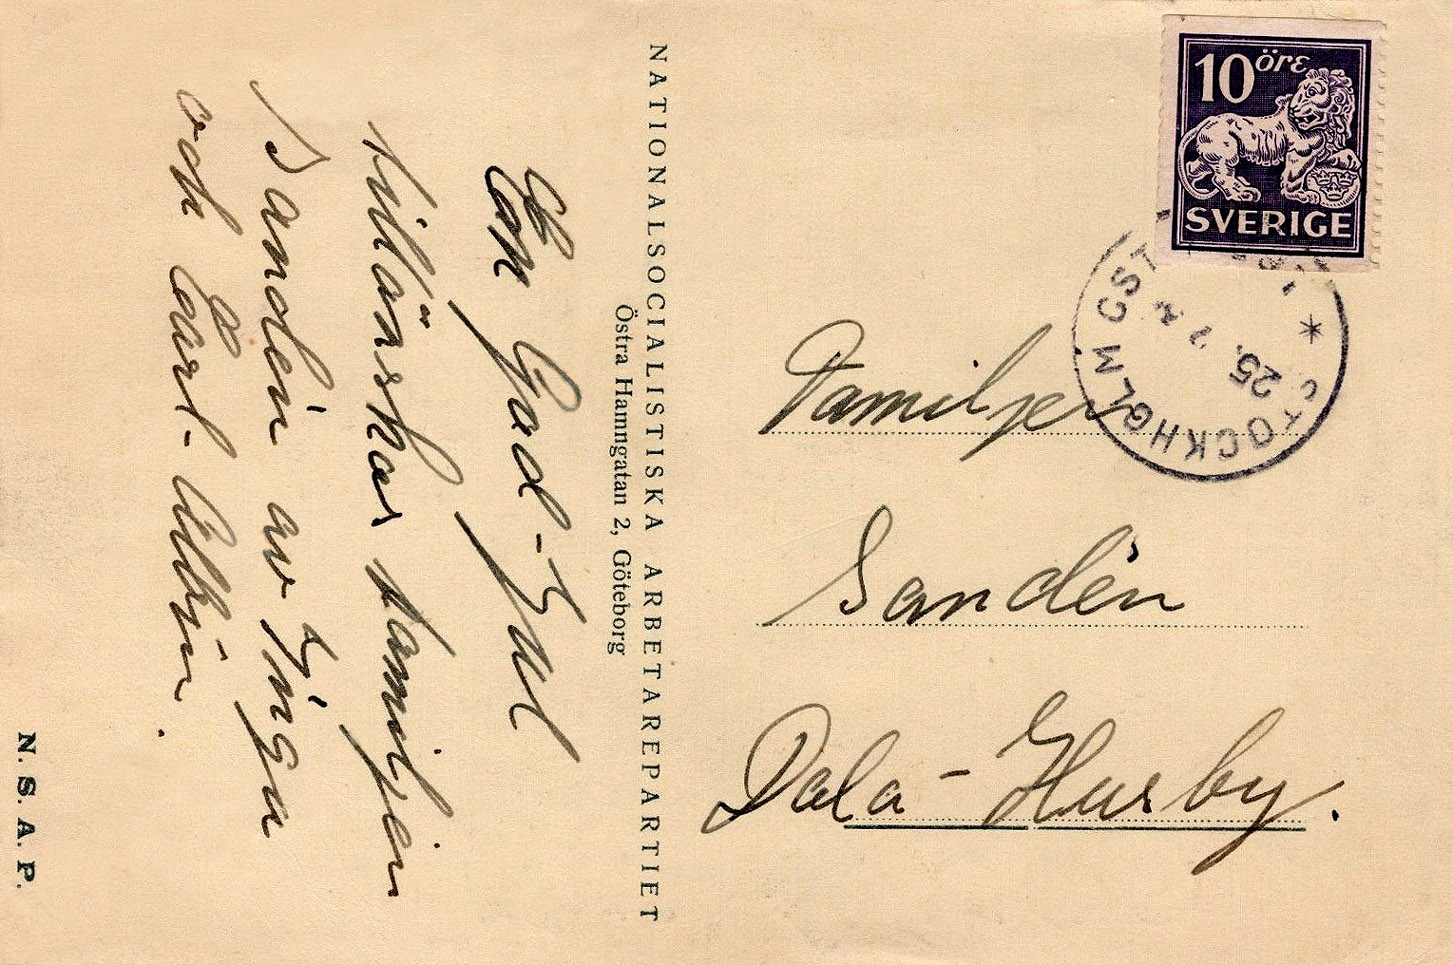 En God-Jul
tillönskas familjen
Sandén av Inga
och Carl-Albin.
NATIONALSOCIALISTISKA ARBETAREPARTIET
Östra Hamngatan 2, Göteborg
N. S. A. P.
10 öre
SVERIGE
STOCKHOLM CST
25.
Familjen
Sandén
Dala-Husby.